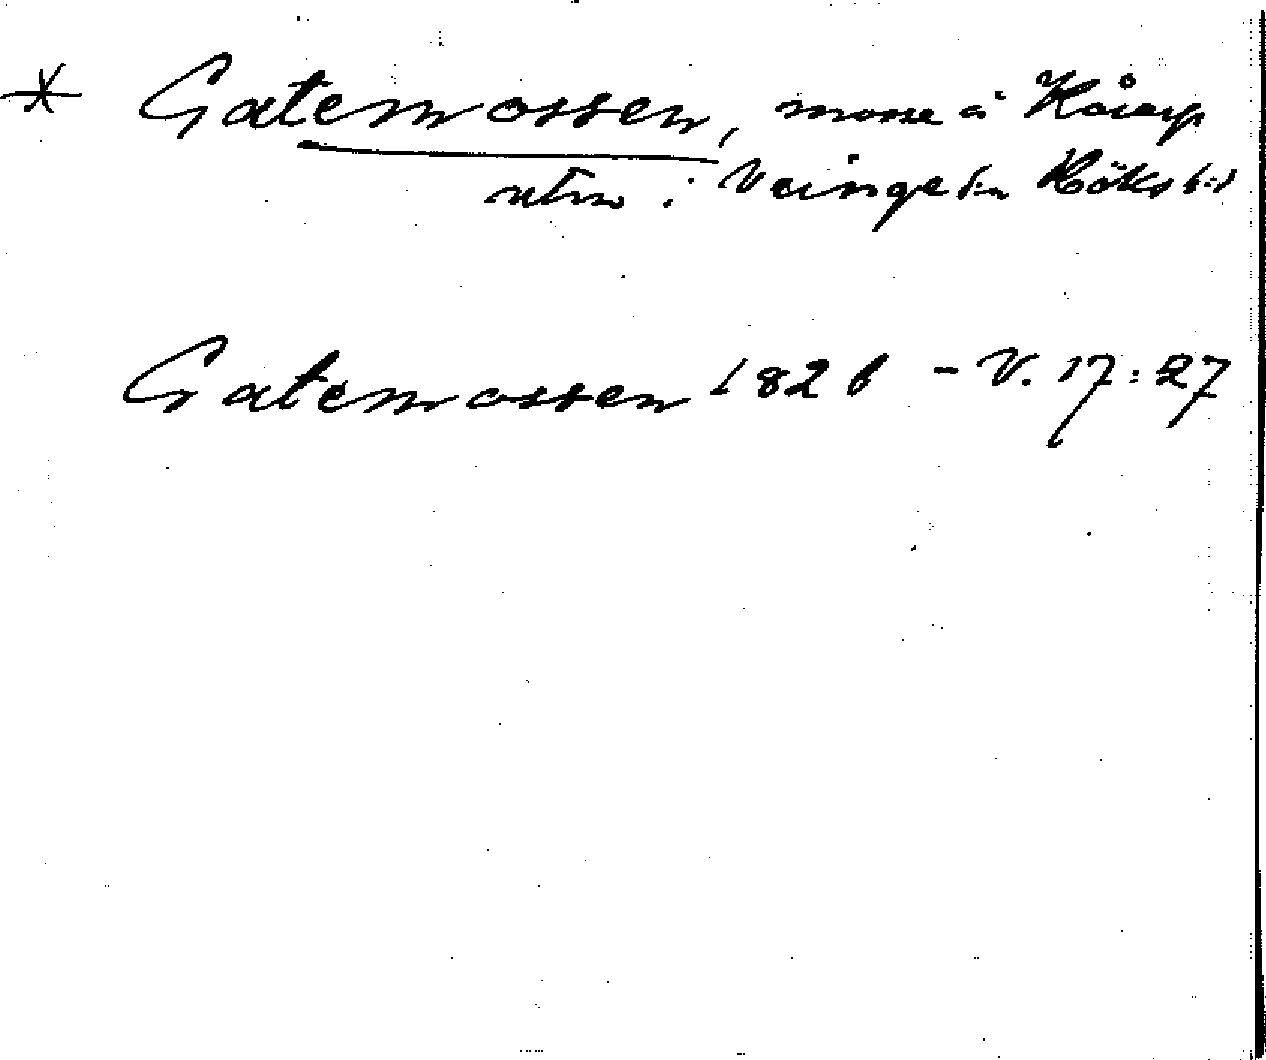 * Gatemossen, mosse å Kåarp
utm i Veinge sn Höks hd
Gatemossen 1826 - V. 17:27